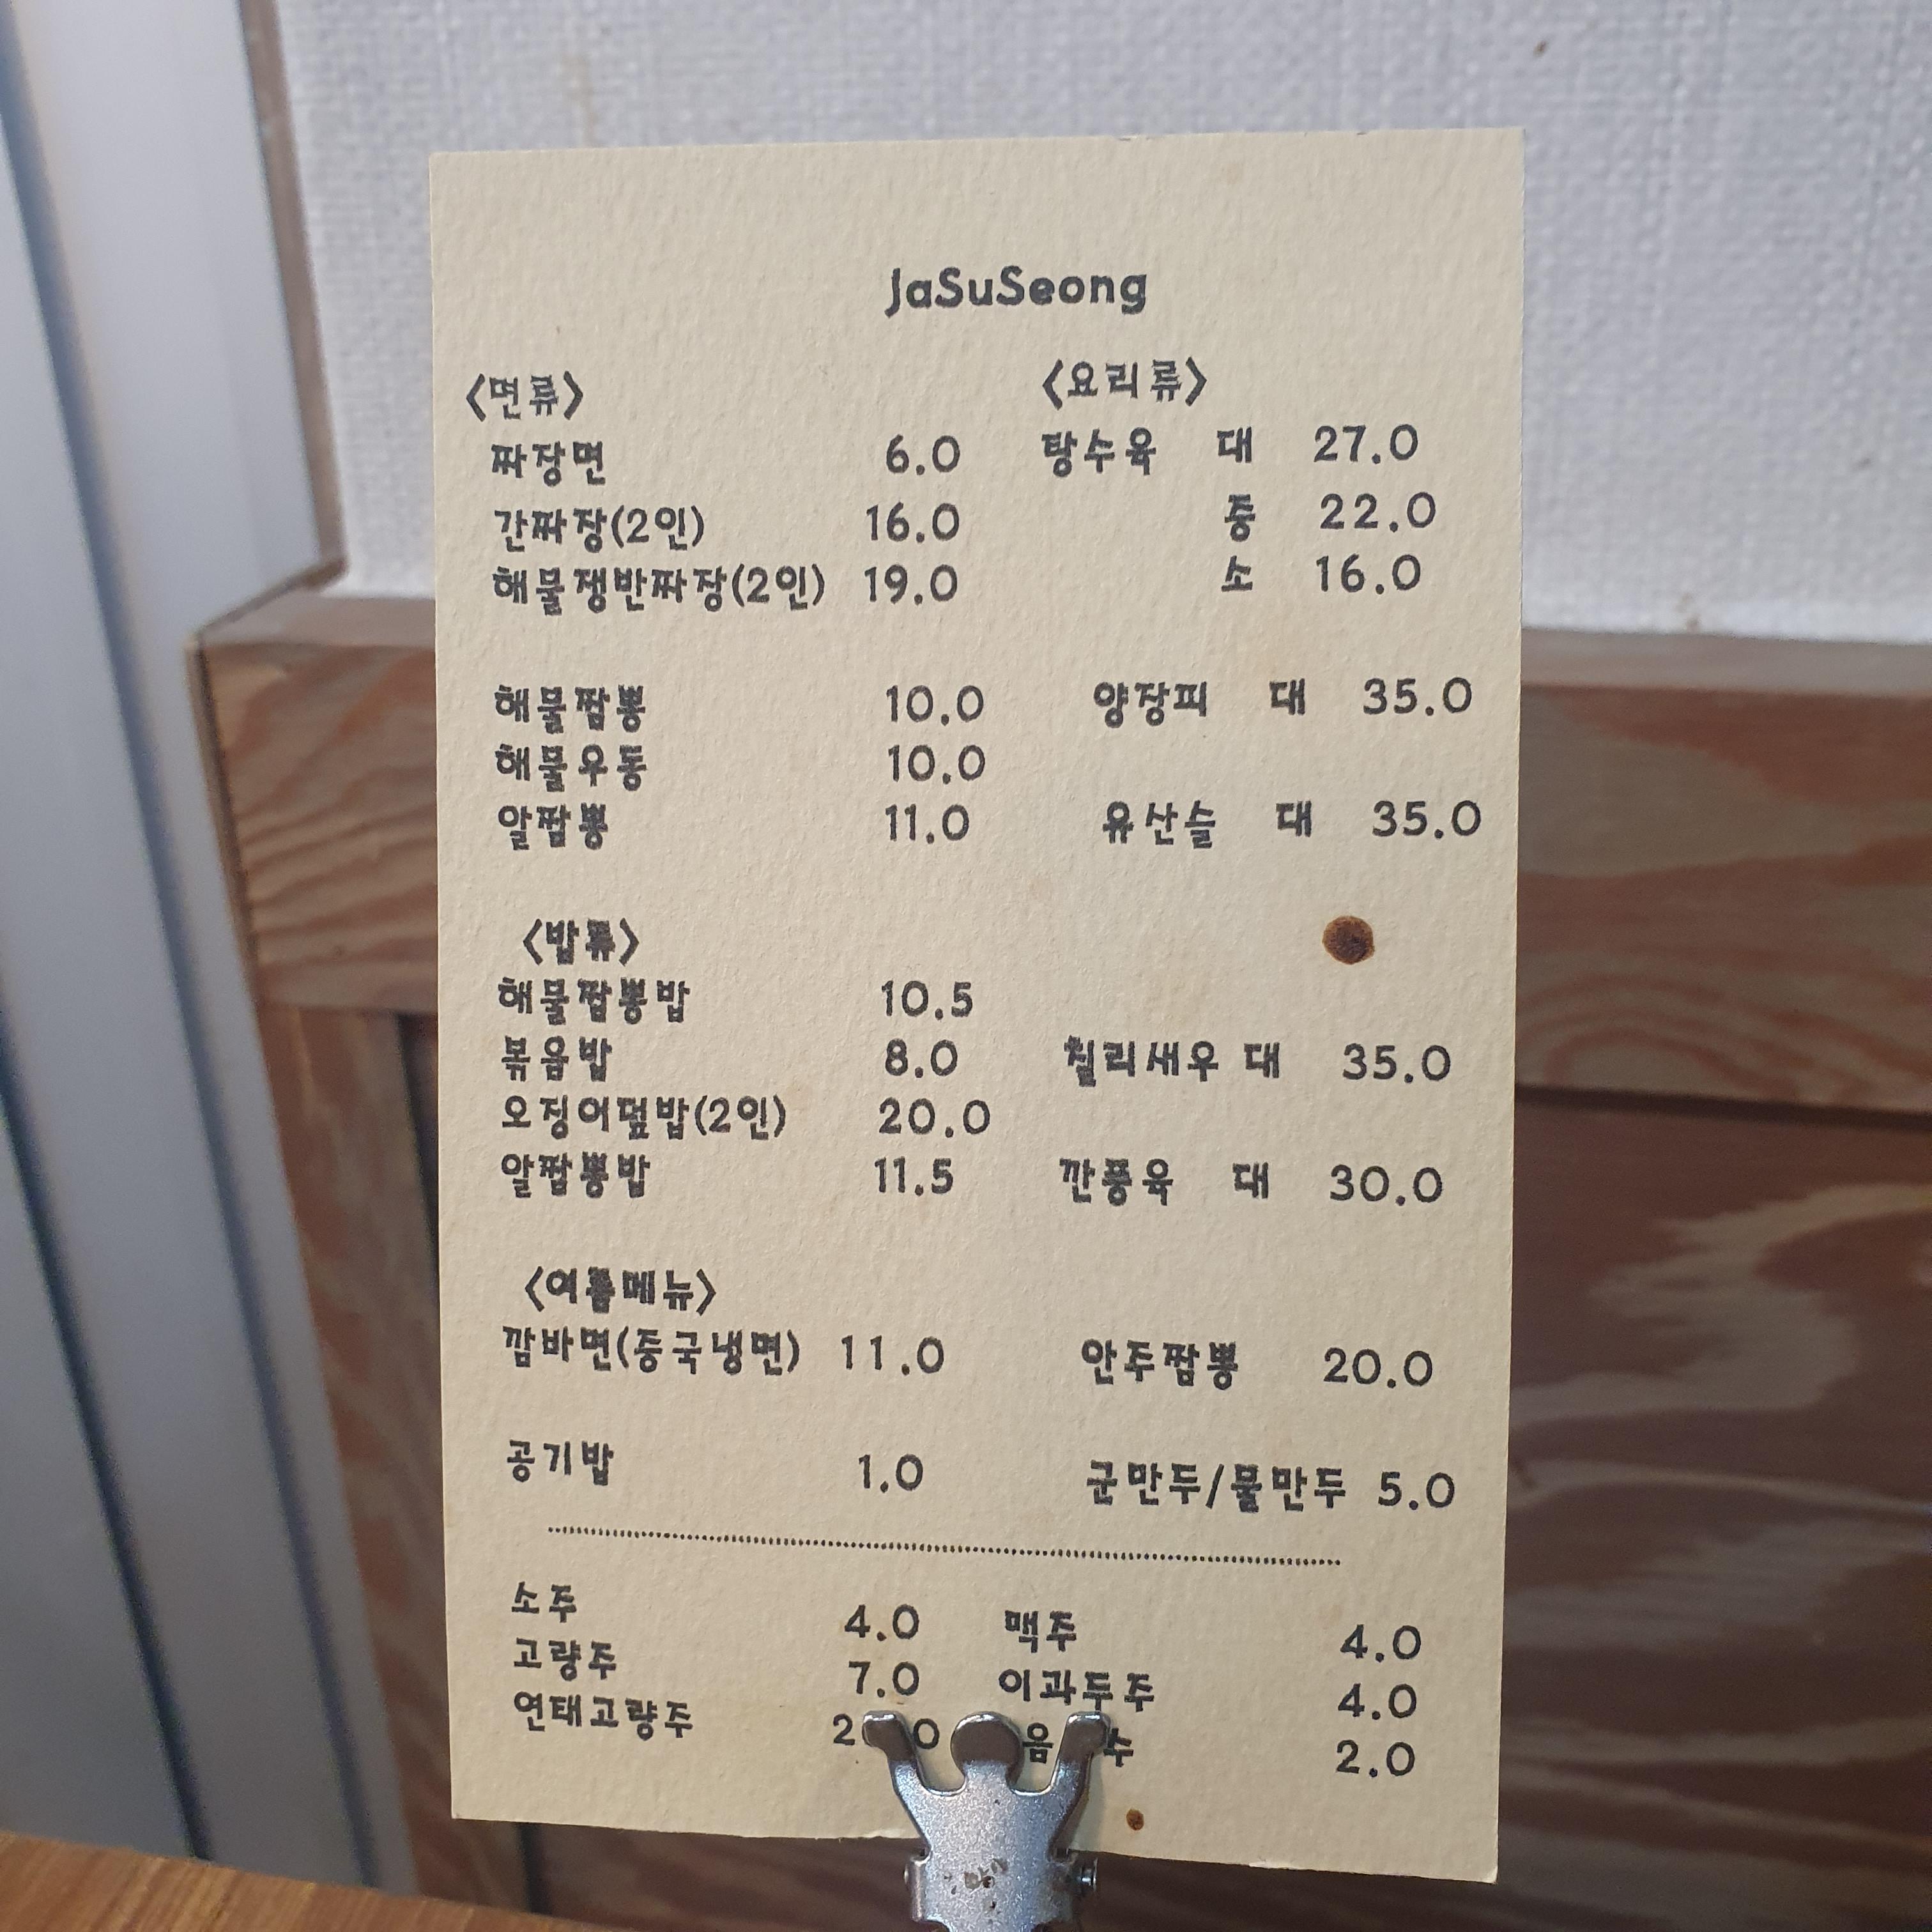 JaSuSeong
<면류>
짜장면 6.0
간짜장(2인) 16.0
해물쟁반짜장(2인) 19.0
해물짬뽕 10.0
해물우동 10.0
알짬뽕 11.0
<밥류>
해물짬뽕밥 10.5
볶음밥 8.0
오징어덮밥(2인) 20.0
알짬뽕밥 11.5
<여름메뉴>
깜바면(중국냉면) 11.0
공기밥 1.0
<요리류>
탕수육 대 27.0
중 22.0
소 16.0
양장피 대 35.0
유산슬 대 35.0
칠리새우 대 35.0
깐풍육 대 30.0
안주짬뽕 20.0
군만두/물만두 5.0
소주 4.0
고량주 7.0
연태고량주
맥주 4.0
이과두주 4.0
2.0